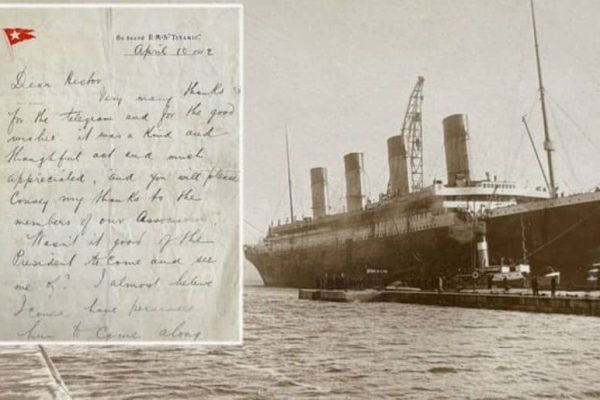 On board R.M.S. "TITANIC".
April 10 1912
Dear Hector
Very many thanks
for the telegram and for the good
wishes. it was a kind and
thoughtful act and much
appreciated, and you will please
Convey my thanks to the
members of our Association.
Wasn't it good of the
President to come and see
me off? I almost believe
I could have persuaded
him to come along